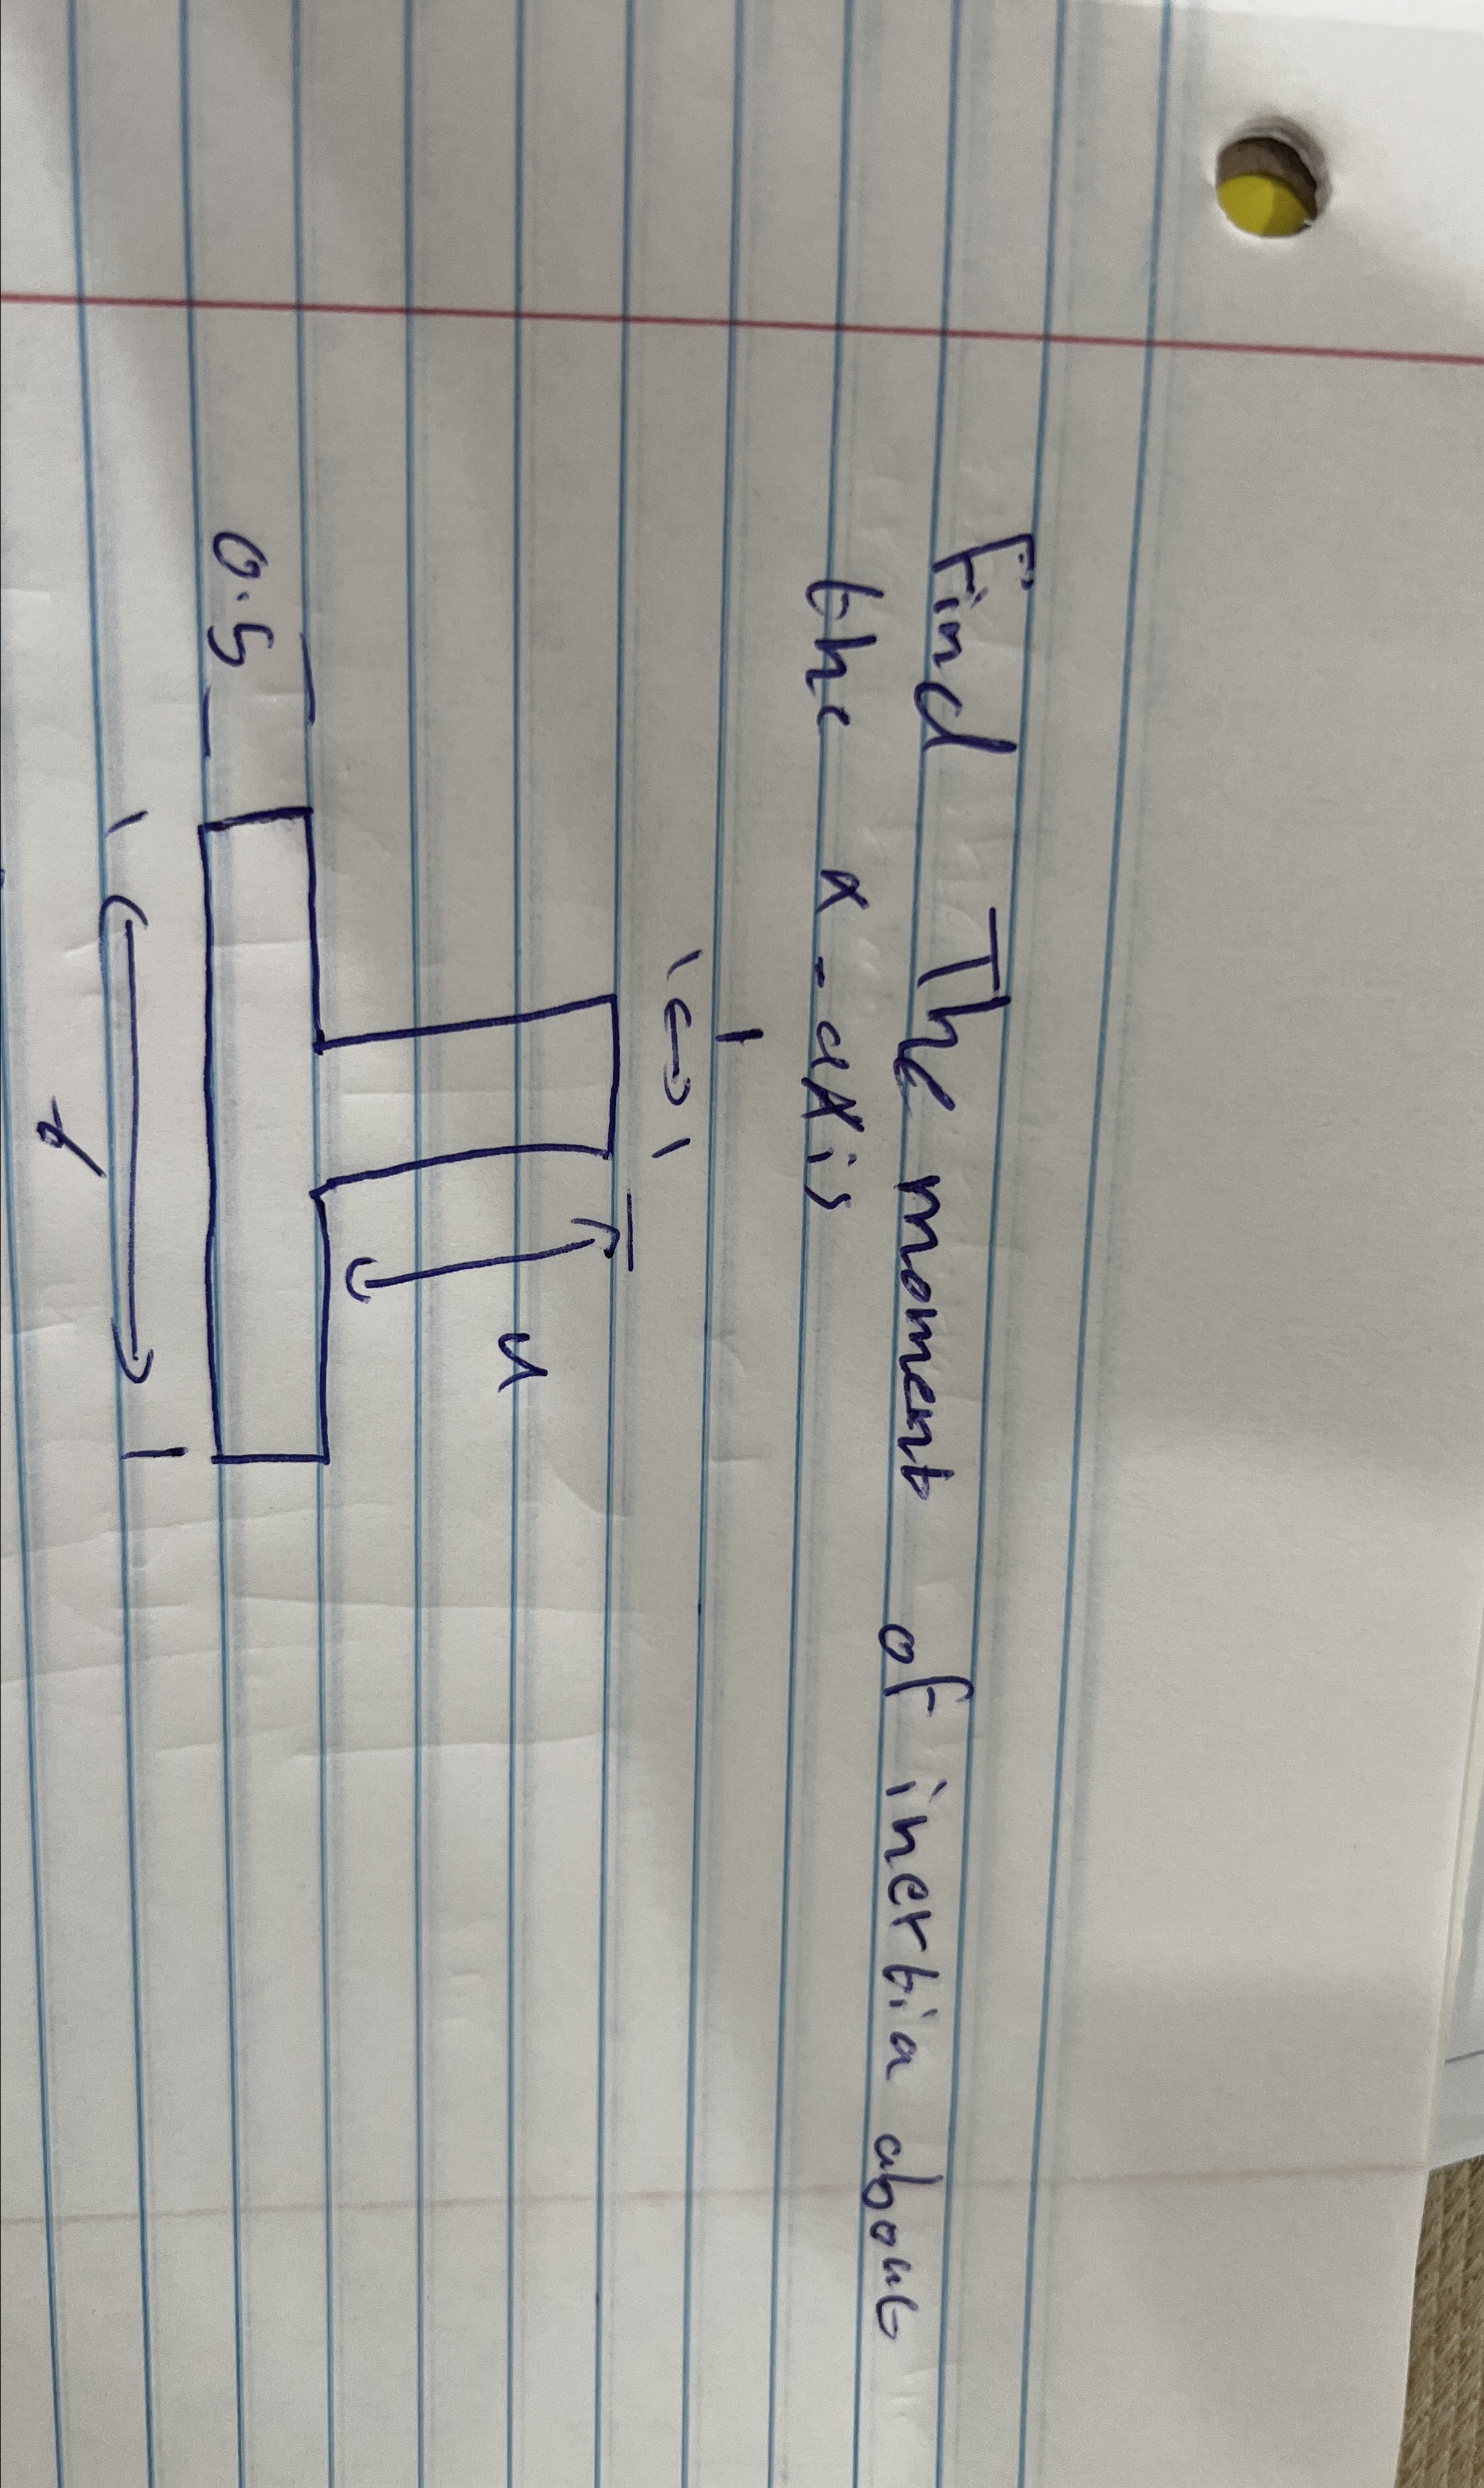 Find The moment of inertia about
the x-axis
1
2
0.5
4